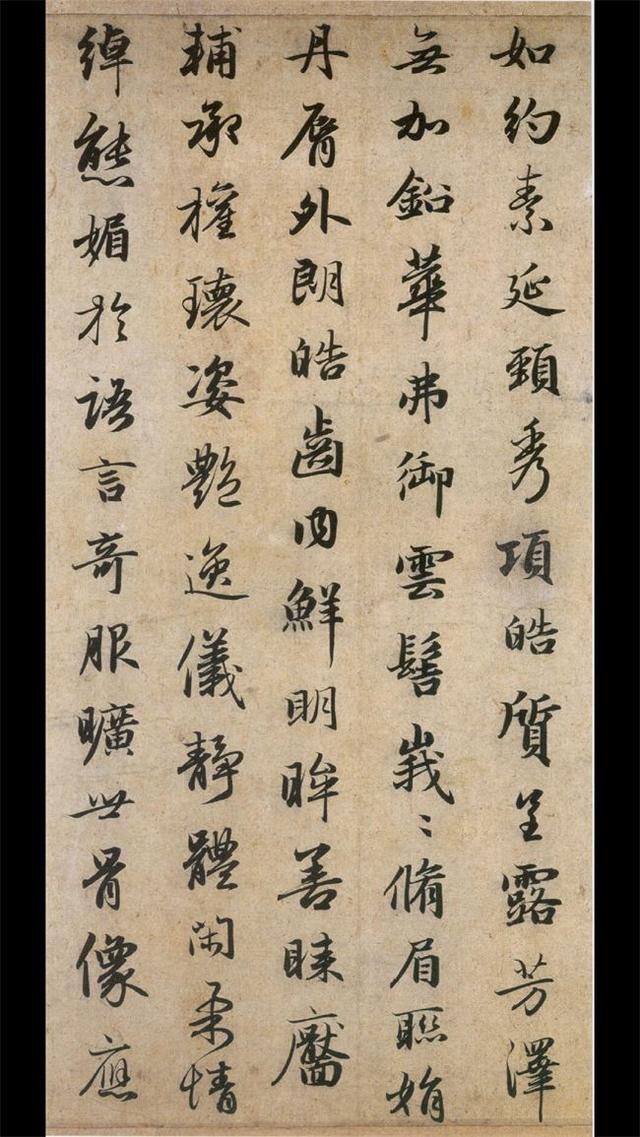 如約素延頸秀項皓質呈露芳澤
無加鉛華弗御雲髻峩〻脩眉聯娟
丹脣外朗皓齒内鮮明眸善睐靨
輔承權瓌姿艶逸儀靜體閑柔情
綽態媚於語言奇服曠世骨像應